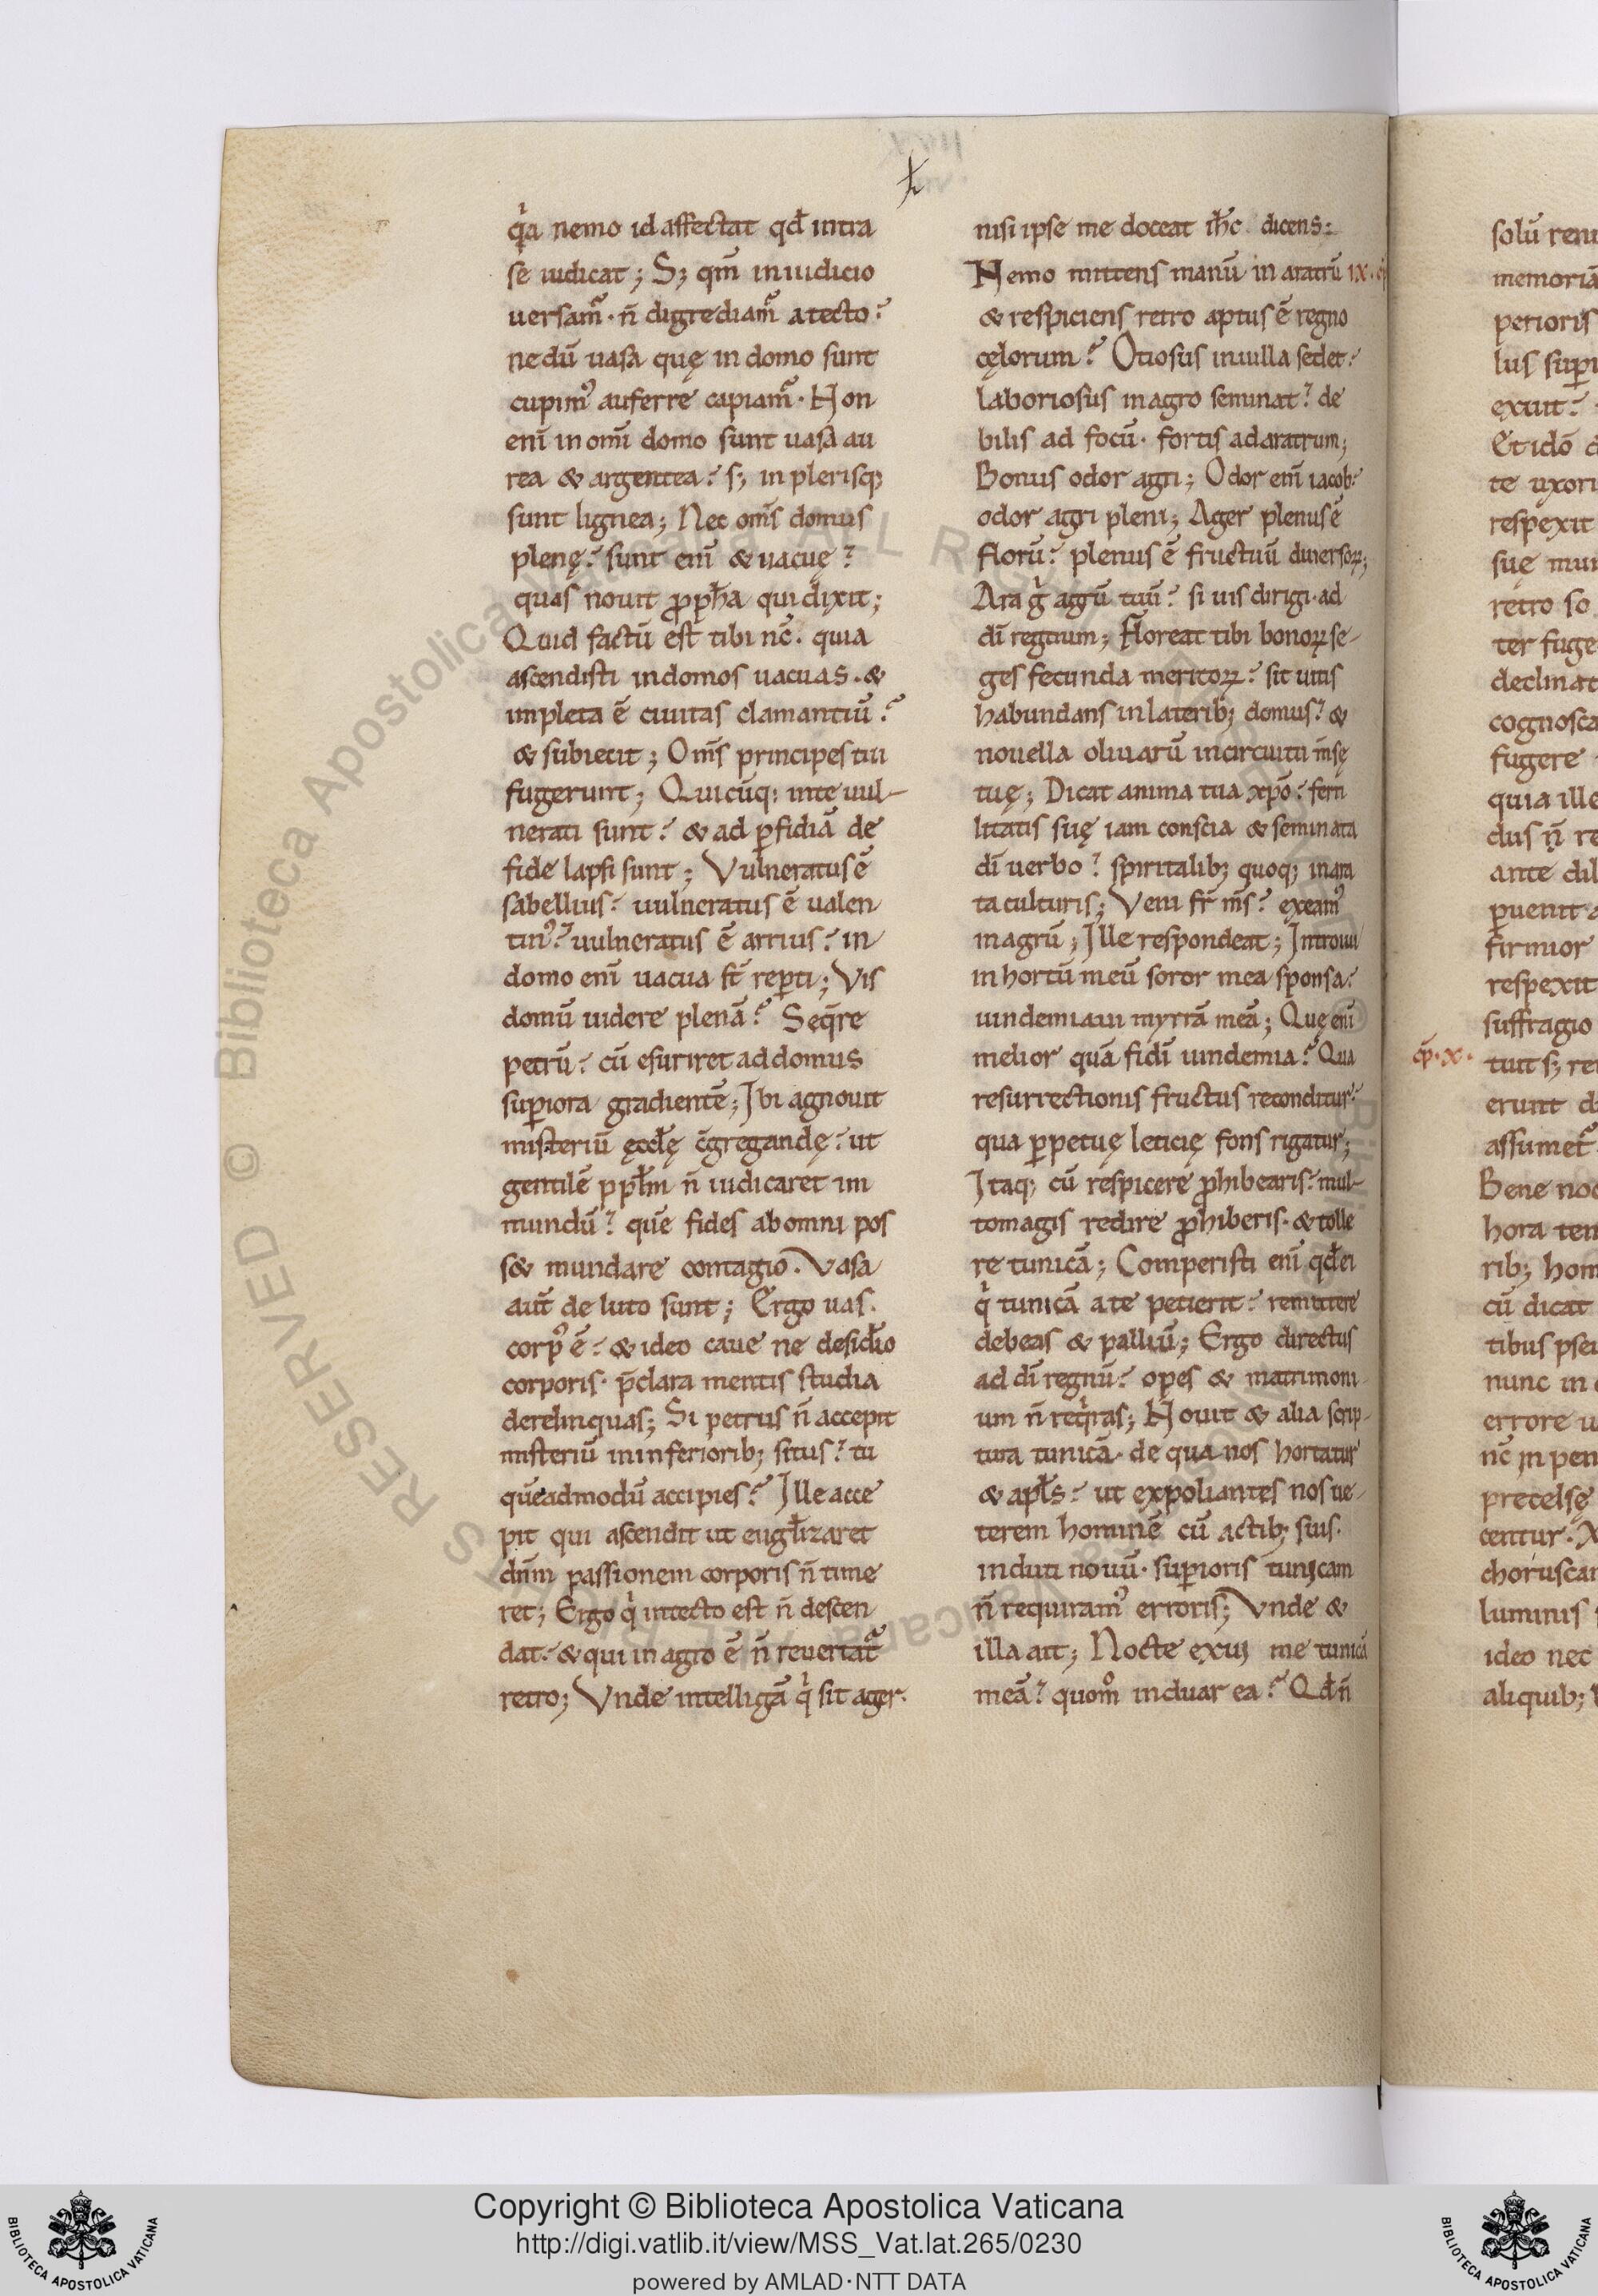 q̉a nemo id affectat qđ intra
se iudicat; S; qm̄ in iudicio
uersam᷑ · n̄ digrediam᷑ a tecto?
nedū uasa quę in domo sunt
cupim᷒ auferre capiam᷑ · Non
enī in om̄i domo sunt uasa au
rea & argentea? s; in plerisq;
sunt lignea; Nec om̄s domus
plenę? sunt enī & uacuę?
quas nouit ꝓph̄a qui dixit;
Quid factū est tibi nc̄. quia
ascendisti in domos uacuas. &
impleta ē ciuitas clamantiū?
& subiecit; Om̄s principes tui
fugerunt; Quicūq; in te uul-
nerati sunt? & ad ꝑfidiā de
fide lapsi sunt; Vulneratus ē
sabellius? uulneratus ē ualen
tin᷒? uulneratus ē arrius? in
domo enī uacua st̄ reꝑti; Vis
domū uidere plenā? Seq̄re
petrū? cū esuriret ad domus
suꝑiora gradientē; Ibi agnouit
misteriū ęccłę c̄gregandę? ut
gentilē ppłm n̄ iudicaret im
mundū? quē fides ab omni pos
s& mundare contagio. Vasa
aut̄ de luto sunt; Ergo uas
corp᷒ ē? & ideo caue ne desiđio
corporis · p̄clara mentis studia
derelinquas; Si petrus n̄ accepit
misteriū in inferiorib; situs? tu
quēadmodū accipies? Ille acce
pit qui ascendit ut eugłizaret
dn̄m passionem corporis n̄ time
ret; Ergo q̉ in tecto est n̄ descen
dat? & qui in agro ē n̄ reuertat᷑
retro; Vnde intelligā q̉ sit ager.
nisi ipse me doceat ih̄c dicens:
Nemo mittens manū in aratrū IX. cp̄
& respiciens retro aptus ē regno
cęlorum? Otiosus in uilla sedet?
laboriosus in agro seminat? de
bilis ad focū · fortis ad aratrum;
Bonus odor agri; Odor enī iacob?
odor agri pleni; Ager plenus ē
florū? plenus ē fructuū diuersoꝝ;
Ara g̉ agrū tuū? si uis dirigi · ad
dī regnum; Floreat tibi bonoꝝ se-
ges fecunda meritoꝝ? sit uitis
habundans in laterib; domus? &
nouella oliuarū in circuitu m̄sę
tuę; Dicat anima tua xp̄o? ferti
litatis suę iam conscia & seminata
dī uerbo? spiritalib; quoq; inara
ta culturis; Veni fr̄ m̄s? exeam᷒
in agrū; Ille respondeat; Introiui
in hortū meū soror mea sponsa?
uindemiaui myrrā meā; Quę enī
melior quā fidī uindemia? Qua
resurrectionis fructus reconditur?
qua ꝑpetuę leticię fons rigatur;
Itaq; cū respicere ꝓhibearis? mul-
to magis redire ꝓhiberis · & tolle
re tunicā; Comperisti enī qđ ei
q̉ tunicā a te petierit? remittere
debeas & palliū; Ergo directus
ad dī regnū? opes & matrimoni
um n̄ req̉ras; Nouit & alia scrip-
tura tunicā · de qua nos hortatur
& apłs? ut expoliantes nos ue-
terem hominē cū actib; suis.
induti nouū · suꝑioris tunicam
n̄ requiram᷒ erroris; Vnde &
illa ait; Nocte exui me tunicā
meā? quom̊ induar ea? Qđ n̄
solū ren
memoriā
perioris
lus suꝑi
exuit?
Et idō d
te uxori
respexit
suę mu
retro so
ter fuge
declinat
cognosca
fugere
quia ille
dus n̄ re
ante dil
ꝑuenit a
firmior
respexit
suffragio
cp̄ · X · tuit s; re
erunt d
assumet᷑
Bene noc
hora ten
rib; hom
cū dicat
tibus pseu
nunc in
errore u
nc̄ in pen
precelsę
centur · X
choruscan
luminis
ideo nec
aliquib;
Copyright © Biblioteca Apostolica Vaticana
http://digi.vatlib.it/view/MSS_Vat.lat.265/0230
powered by AMLAD·NTT DATA
BIBLIOTECA APOSTOLICA VATICANA
BIBLIOTECA APOSTOLICA VATICANA